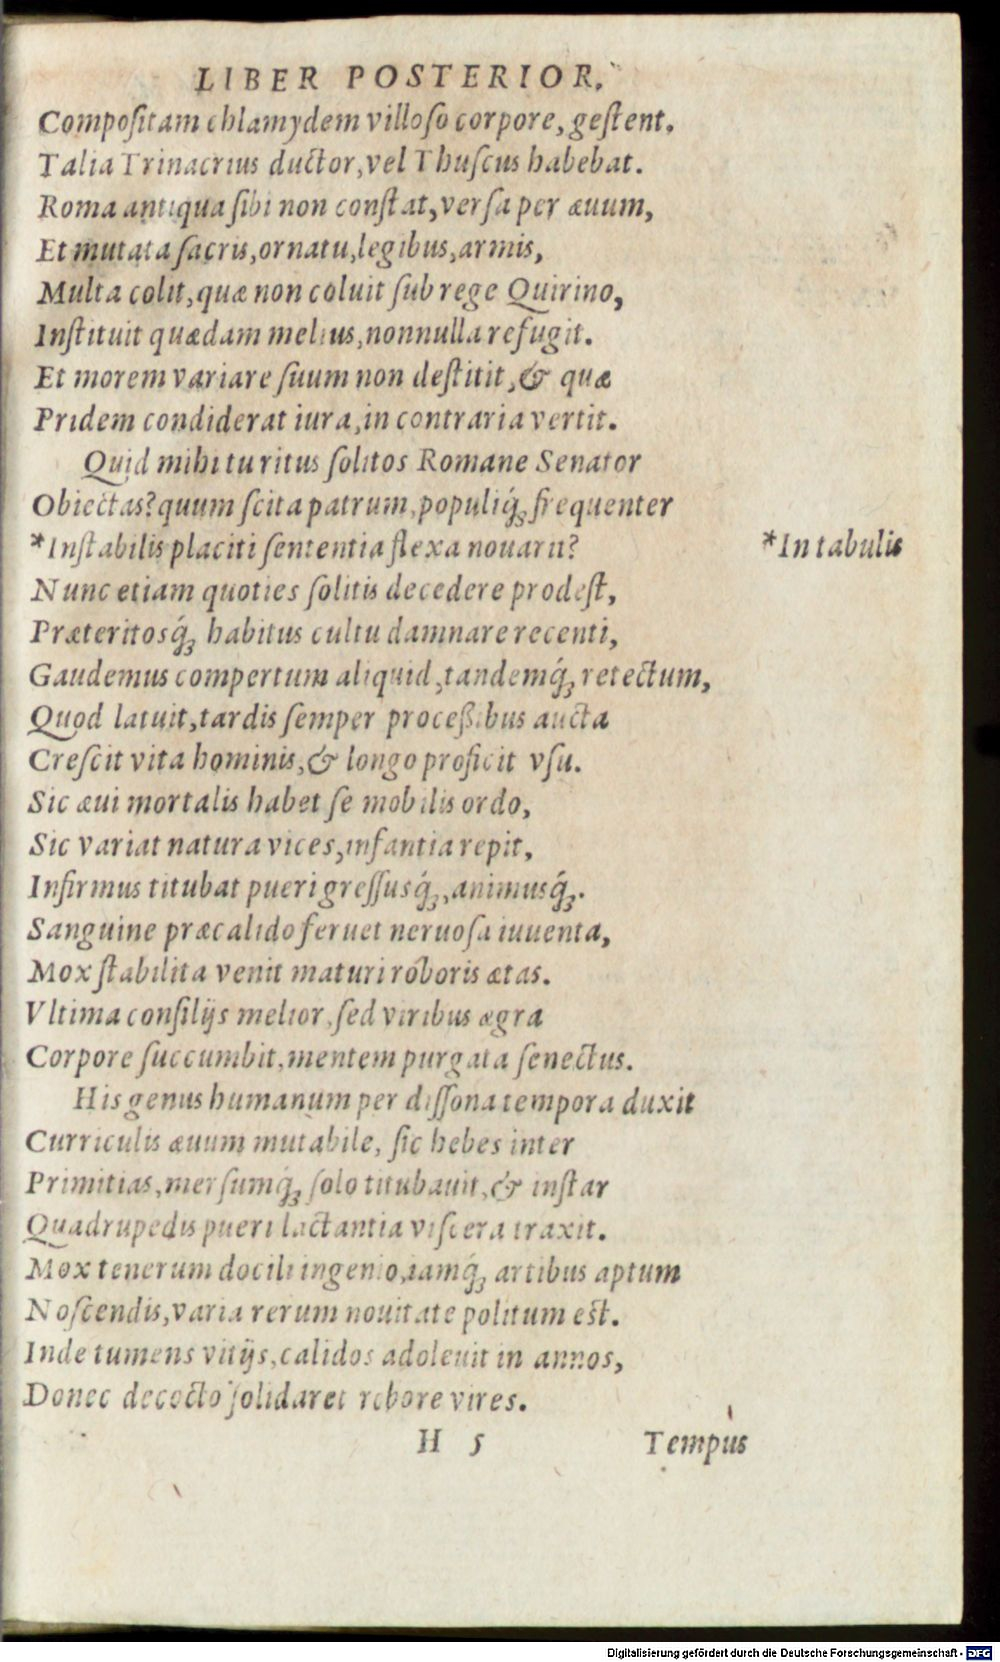 LIBER POSTERIOR.
Compoſitam chlamydem villoſo corpore, geſtent.
Talia Trinacrius ductor, vel Thuſcus habebat.
Roma antiqua ſibi non conſtat, verſa per æuum,
Et mutata ſacris, ornatu, legibus, armis,
Multa colit, quæ non coluit ſub rege Quirino,
Inſtituit quædam melius, nonnulla refugit.
Et morem variare ſuum non deſtitit, & quæ
Pridem condiderat iura, in contraria vertit.
Quid mihi tu ritus ſolitos Romane Senator
Obiectas? quum ſcita patrum, populiq́ꝫ frequenter
*Inſtabilis placiti ſententia flexa nouarit?
*In tabulis
Nunc etiam quoties ſolitis decedere prodeſt,
Præteritosq́ꝫ habitus cultu damnare recenti,
Gaudemus compertum aliquid, tandemq́ꝫ retectum,
Quod latuit, tardis ſemper proceßibus aucta
Creſcit vita hominis, & longo proficit vſu.
Sic æui mortalis habet ſe mobilis ordo,
Sic variat natura vices, infantia repit,
Infirmus titubat pueri greſſusq́ꝫ, animusq́ꝫ.
Sanguine præcalido feruet neruoſa iuuenta,
Mox ſtabilita venit maturi roboris ætas.
Vltima conſilijs melior, ſed viribus ægra
Corpore ſuccumbit, mentem purgata ſenectus.
His genus humanum per diſſona tempora duxit
Curriculis æuum mutabile, ſic hebes inter
Primitias, merſumq́ꝫ ſolo titubauit, & inſtar
Quadrupedis pueri lactantia viſcera traxit.
Mox tenerum docili ingenio, iamq́ꝫ artibus aptum
Noſcendis, varia rerum nouitate politum est.
Inde tumens vitijs, calidos adoleuit in annos,
Donec decocto ſolidaret robore vires.
H 5
Tempus
Digitalisierung gefördert durch die Deutsche Forschungsgemeinschaft - DFG